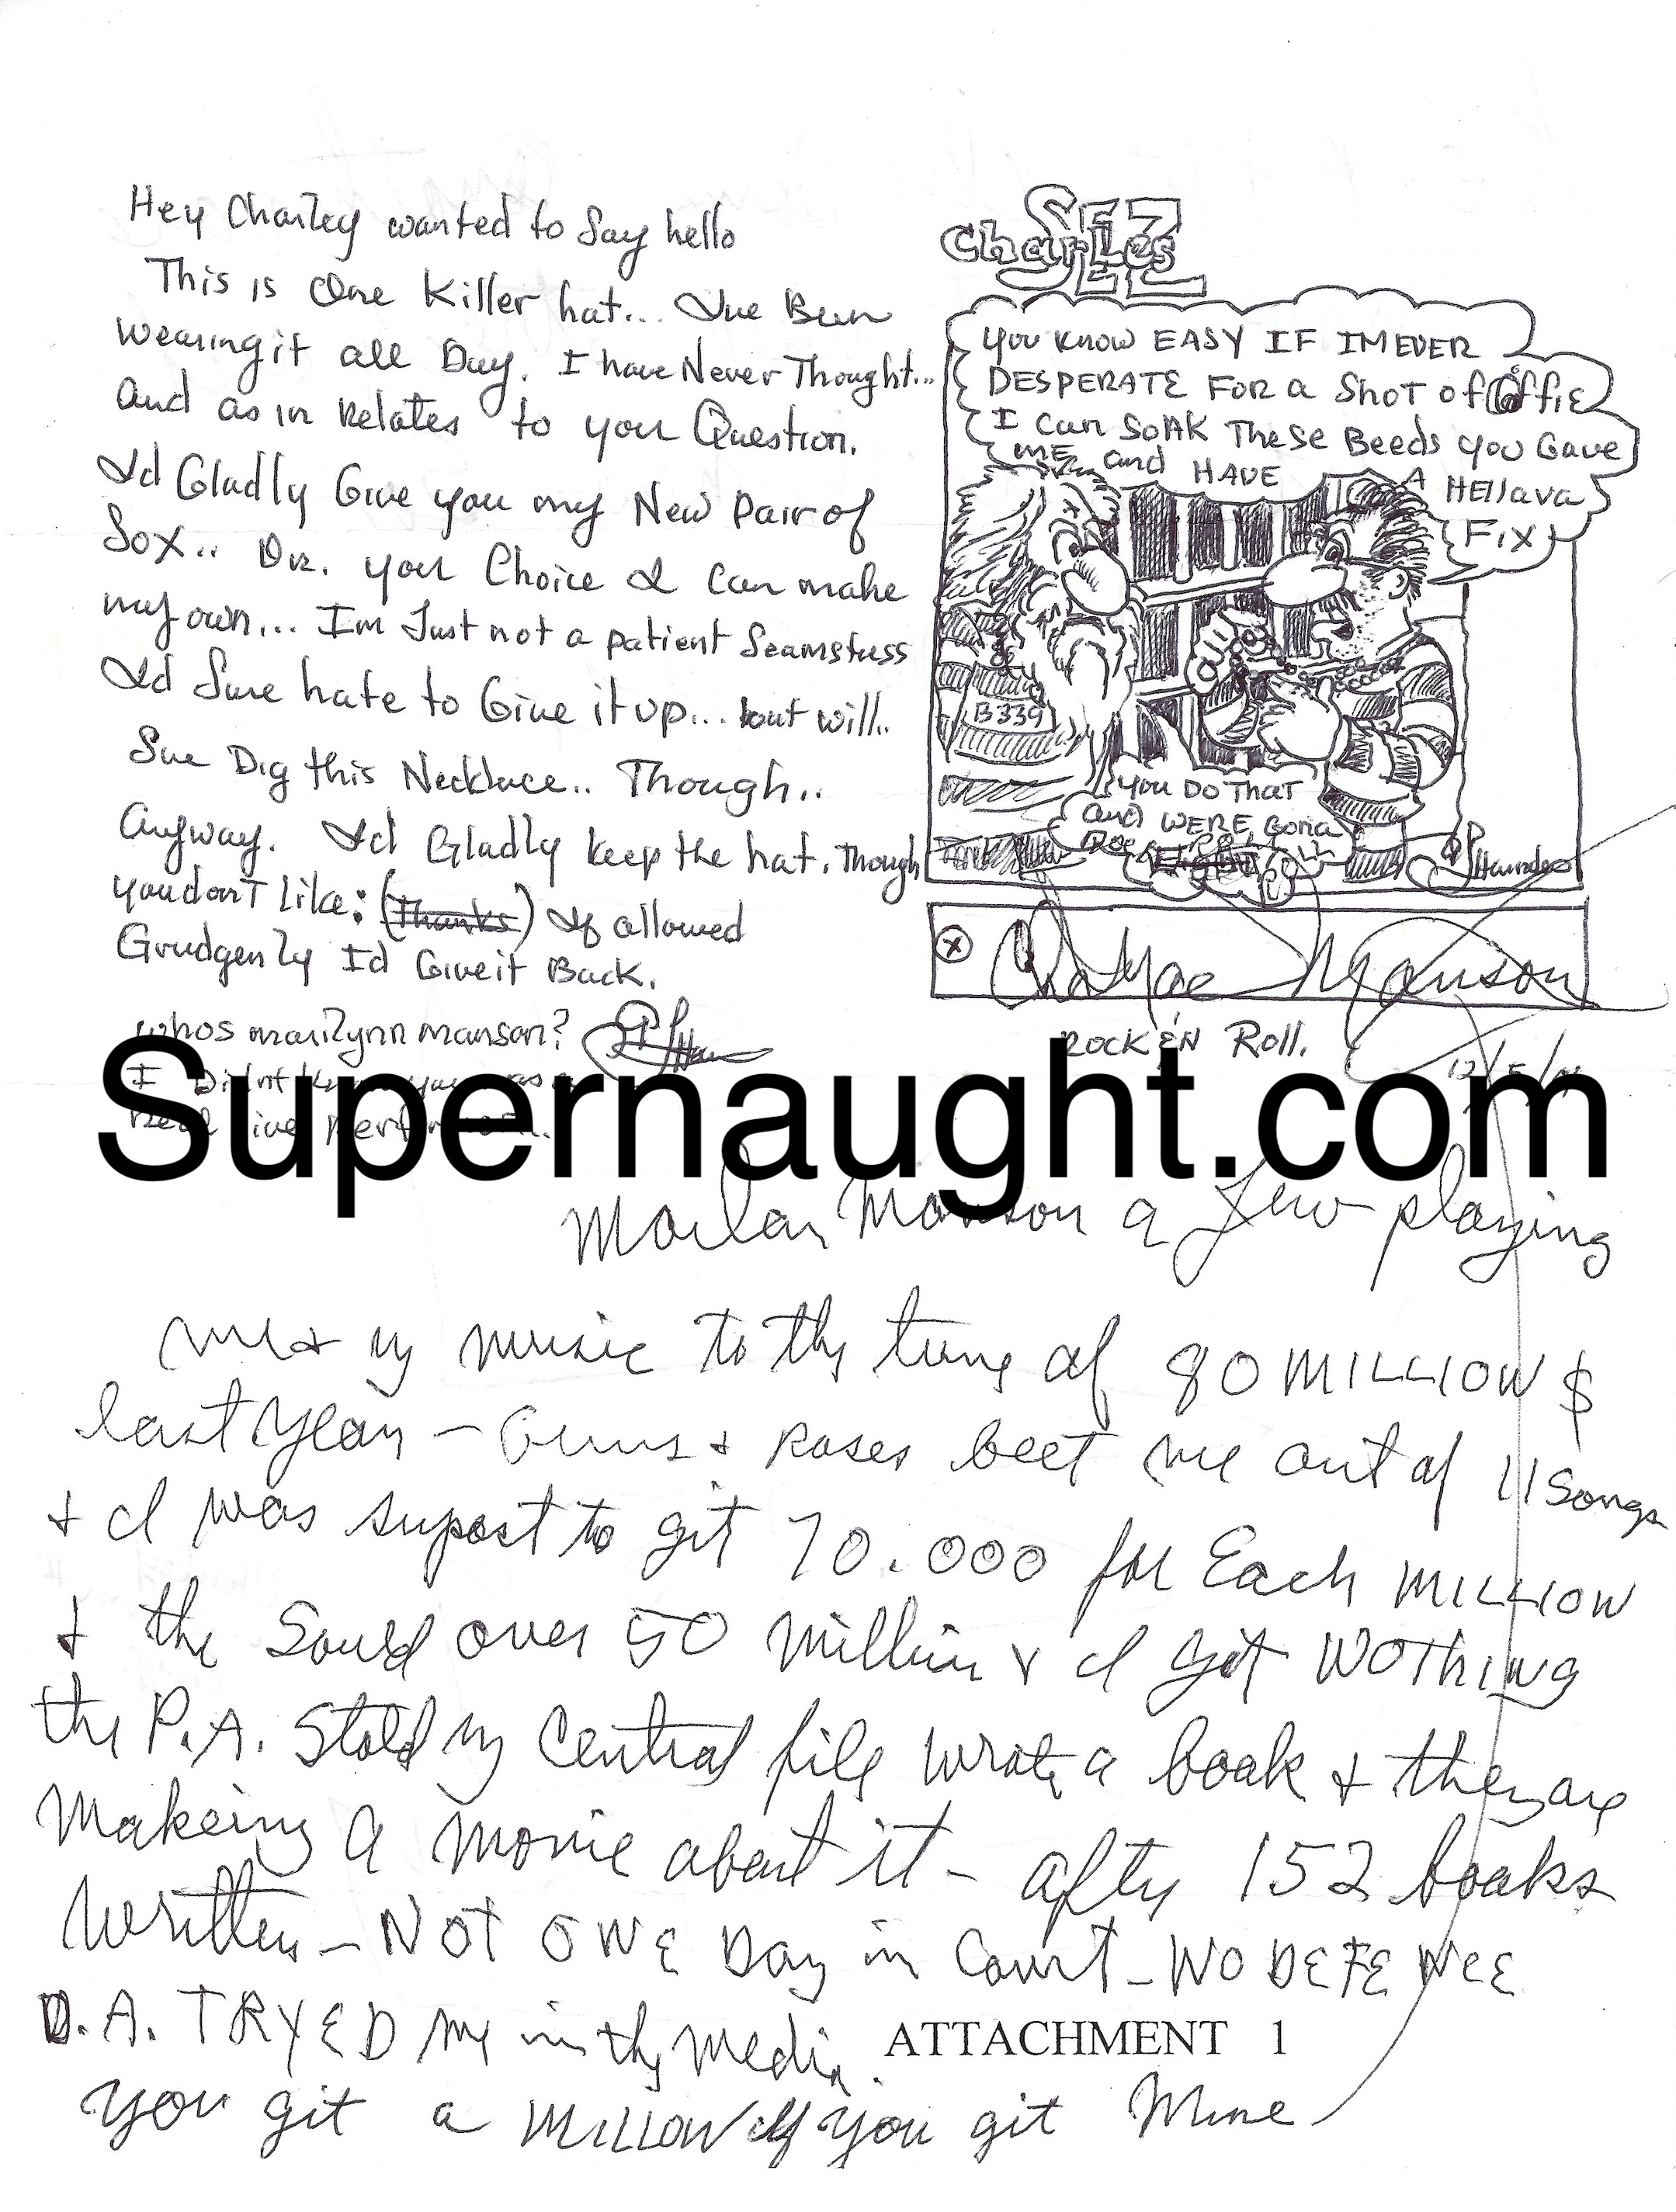 Hey Charley wanted to Say hello
This is One Killer hat... Ive Been
wearing it all Day. I have Never Thought...
and as in Relates to your Question.
Id Gladly Give you my New pair of
Sox.. OR. your Choice I can make
my own... Im Just not a patient Seamstress
Id Sure hate to Give it up... but will..
Sue Dig this Necklace.. Though..
Anyway. Id Gladly keep the hat. Though
you don't like: (Thanks) If allowed
Grudgenly Id Give it Back.
whos marilynn manson?
I Didnt
Real live
Charles SEZ
YOU KNOW EASY IF IM EVER
DESPERATE FOR a SHOT of Coffie
I Can SOAK These Beeds you Gave
ME and HAVE A Hellava
FIX
B339
you Do That
and WERE Gona
ⓧ Charles Manson
ROCK EN Roll.
12/5/
Supernaught.com
Manson a Jew playing
me & my music to thy tune of 80 MILLION $
last year – Guns & Roses beet me out of 11 Songs
& I was supost to git 70.000 for Each MILLION
& the Sould over 50 million & I git NOTHING
the P.A. Stold my Central file wrote a book & they are
Makeing a movie about it – after 152 books
Written – NOT ONE Day in Court – NO DEFENCE
D.A. TRYED me in thy Media.
ATTACHMENT 1
you git a MILLION if you git Mine